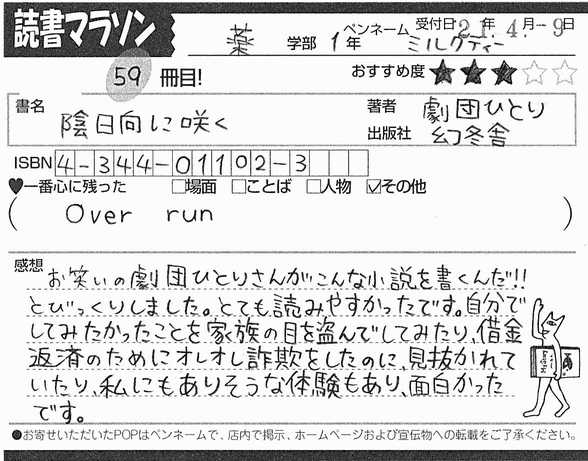 読書マラソン
薬 学部 1年
ペンネーム ミルクティー
受付日 21年 4月-9日
59 冊目!
おすすめ度 ★★★☆☆
書名 陰日向に咲く
著者 劇団ひとり
出版社 幻冬舎
ISBN 4-344-01102-3
♥一番心に残った □場面 □ことば □人物 ☑その他
( Over run )
感想
お笑いの劇団ひとりさんがこんな小説を書くんだ!!
とびっくりしました。とても読みやすかったです。自分で
してみたかったことを家族の目を盗んでしてみたり、借金
返済のためにオレオレ詐欺をしたのに、見抜かれて
いたり、私にもありそうな体験もあり、面白かった
です。
●お寄せいただいたPOPはペンネームで、店内で掲示、ホームページおよび宣伝物への転載をご了承ください。